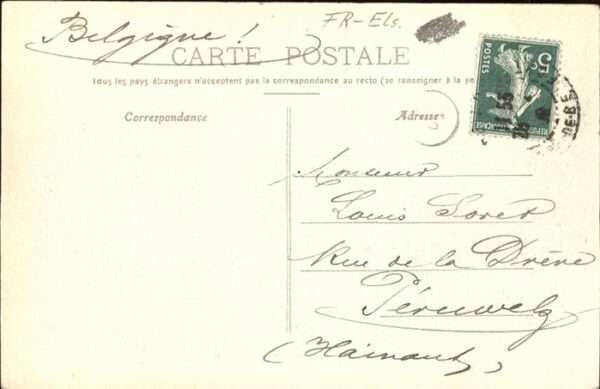 Belgique!
FR-Els.
CARTE POSTALE
Tous les pays étrangers n'acceptent pas la correspondance au recto (se renseigner à la po
Correspondance
Adresse
5c
POSTES
REPUBLIQUE FRANÇAISE
Monsieur
Louis Soret
Rue de la Drève
Péruwelz
(Hainaut)